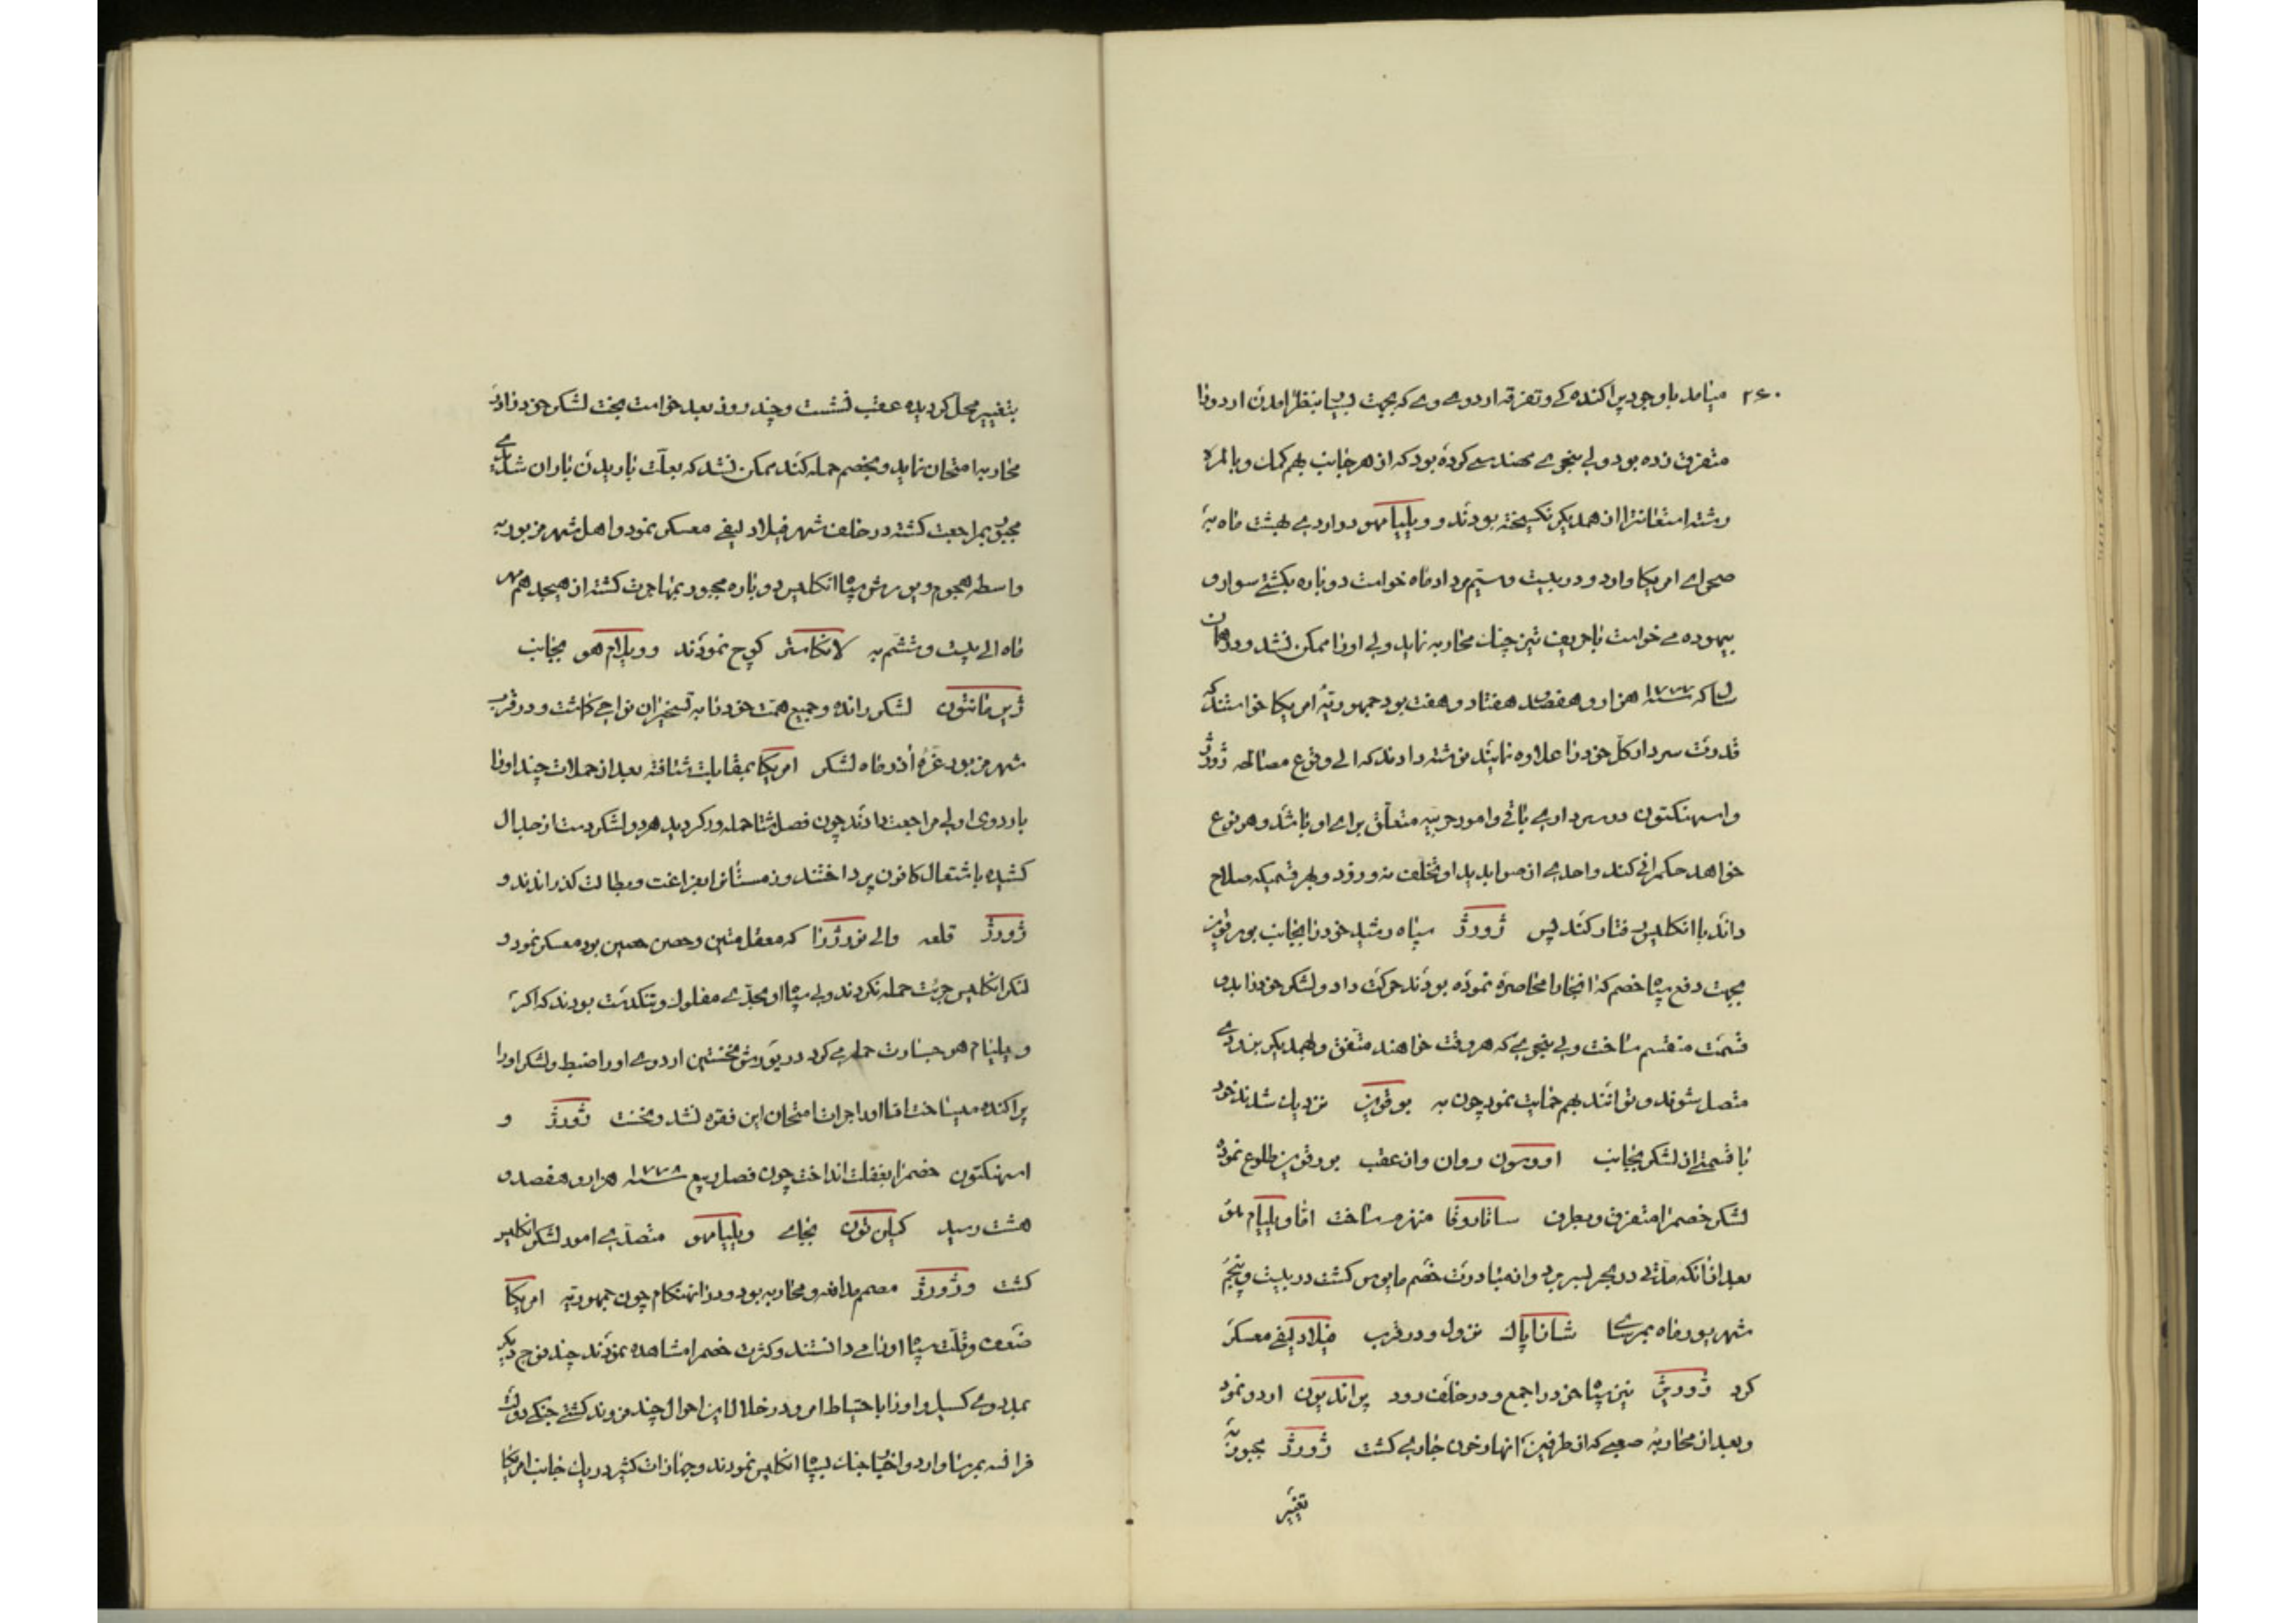 ۲۶۰
میامد باوجود پراکنده کی و تفرقه اردوی وی که بجهت بسیا بنظر امدن اردو را
متفرق زده بود ولی بنحوی مهندسی کرده بود که از هر جانب بهم کمک و بالمره
رشته استعانترا از همدیکر نکسیخته بودند و ویلیام هو دو اردی بهشت ماه به
صحرای امریکا وارد و در بیست و سیم مرداد ماه خواست دوباره بکشتی سوار و
بیهوده می خواست با حریف تیز چنک محاربه نماید ولی او را ممکن نشد و در همان
سال که سنه ۱۷۷۷ هزار و هفتصد هفتاد و هفت بود جمهوریهٔ امریکا خواستند که
قدرت سردار کل خود را علاوه نمایند نوشته دادند که الی وقوع مصالحه ژورژ
واسهنکتون در سرداری باقی و امور حربیه متعلق برای او باشد و هر نوع
خواهد حکمرانی کند واحدی از صوابدید او تخلف نه ورزد و بهر قسمیکه صلاح
داند با انکلیس رفتار کند پس ژورژ سپاه رشید خود را بجانب بورقوین
بجهت دفع سپاه خصم که انجا را محاصره نموده بودند حرکت داد و لشکر خود را بدو
قسمت منقسم ساخت ولی بنحوی که هر وقت خواهند متفق و بهمدیکر بزودی
متصل شوند و توانند بهم حمایت نمود چون به بورقوین نزدیک شدند خود
با قسمتی از لشکر بجانب اووسون روان و از عقب بورقوین طلوع نموده
لشکر خصم را متفرق و بطرف ساناروقا منهزم ساخت اما ویلیام هو
بعد از انکه مدتی در بحر بسر برد و از مبادرت خصم مایوس کشت در بیست و پنجم
شهریور ماه بمرسای شازاپاک نزول و در قرب فیلادلیفی معسکر
کرد ژورژ نیز سپاه خود را جمع و در خلف رود براندیون اردو نمود
و بعد از محاربهٔ صعبی که از طرفین انهار خون جاری کشت ژورژ مجبور به
تغییر
بتغییر محل کردیده عقب نشست و چند روز بعد خواست بخت لشکر خود را در
محاربه امتحان نماید و بخصم حمله کند ممکن نشد که بعلت باریدن باران شدیدی
مجبور بمراجعت کشته در خلف شهر فیلادلیفی معسکر نمود و اهل شهر مزبور به
واسطه هجوم و یورش سپاه انکلیس دوباره مجبور بمهاجرت کشته از هیجدهم مهر
ماه الی بیست و ششم به لانکاستر کوچ نمودند و ویلیام هو بجانب
ژرمانتون لشکر رانده و جمیع همت خود را به تسخیر ان نواحی کماشت و در قرب
شهر مزبور غرهٔ اذر ماه لشکر امریکا بمقابلت شتافته بعد از حملات چند او را
باردوی اولی مراجعت دادند چون فصل شتا حمله ور کردید هر دو لشکر دست از جدال
کشیده باشتعال کانون پرداختند و زمستانرا بفراغت و بطالت کذراندند و
ژورژ قلعه والی نورژ را که معقل متین و حصن حصین بود معسکر نمود و
لشکر انکلیس جرئت حمله نکردند ولی سپاه او بحدی مفلوک و تنکدست بودند که اکر
ویلیام هو جسارت حمله می کرد در یورش نخستین اردوی او را ضبط و لشکر او را
پراکنده میساخت اما او را جرات امتحان این فقره نشد و بخت ژورژ و
اسهنکتون خصم را بغفلت انداخت چون فصل ربیع سنه ۱۷۷۸ هزار و هفصد و
هشت رسید کیلن تون بجای ویلیام هو متصدی امور لشکر انکلیس
کشت و ژورژ مصمم مدافعه و محاربه بود و در انهنکام چون جمهوریه امریکا
ضعف و قلت سپاه او را می دانستند و کثرت خصم را مشاهده نمودند چند فوج دیکر
بمدد وی کسیل و او را باحتیاط امر و در خلال این احوال چند فروند کشتی جنکی دولت
فرانسه بمرسا وارد و اخبار جنک بسپاه انکلیس نمودند و جهازات کثیر در یک جانب امریکا